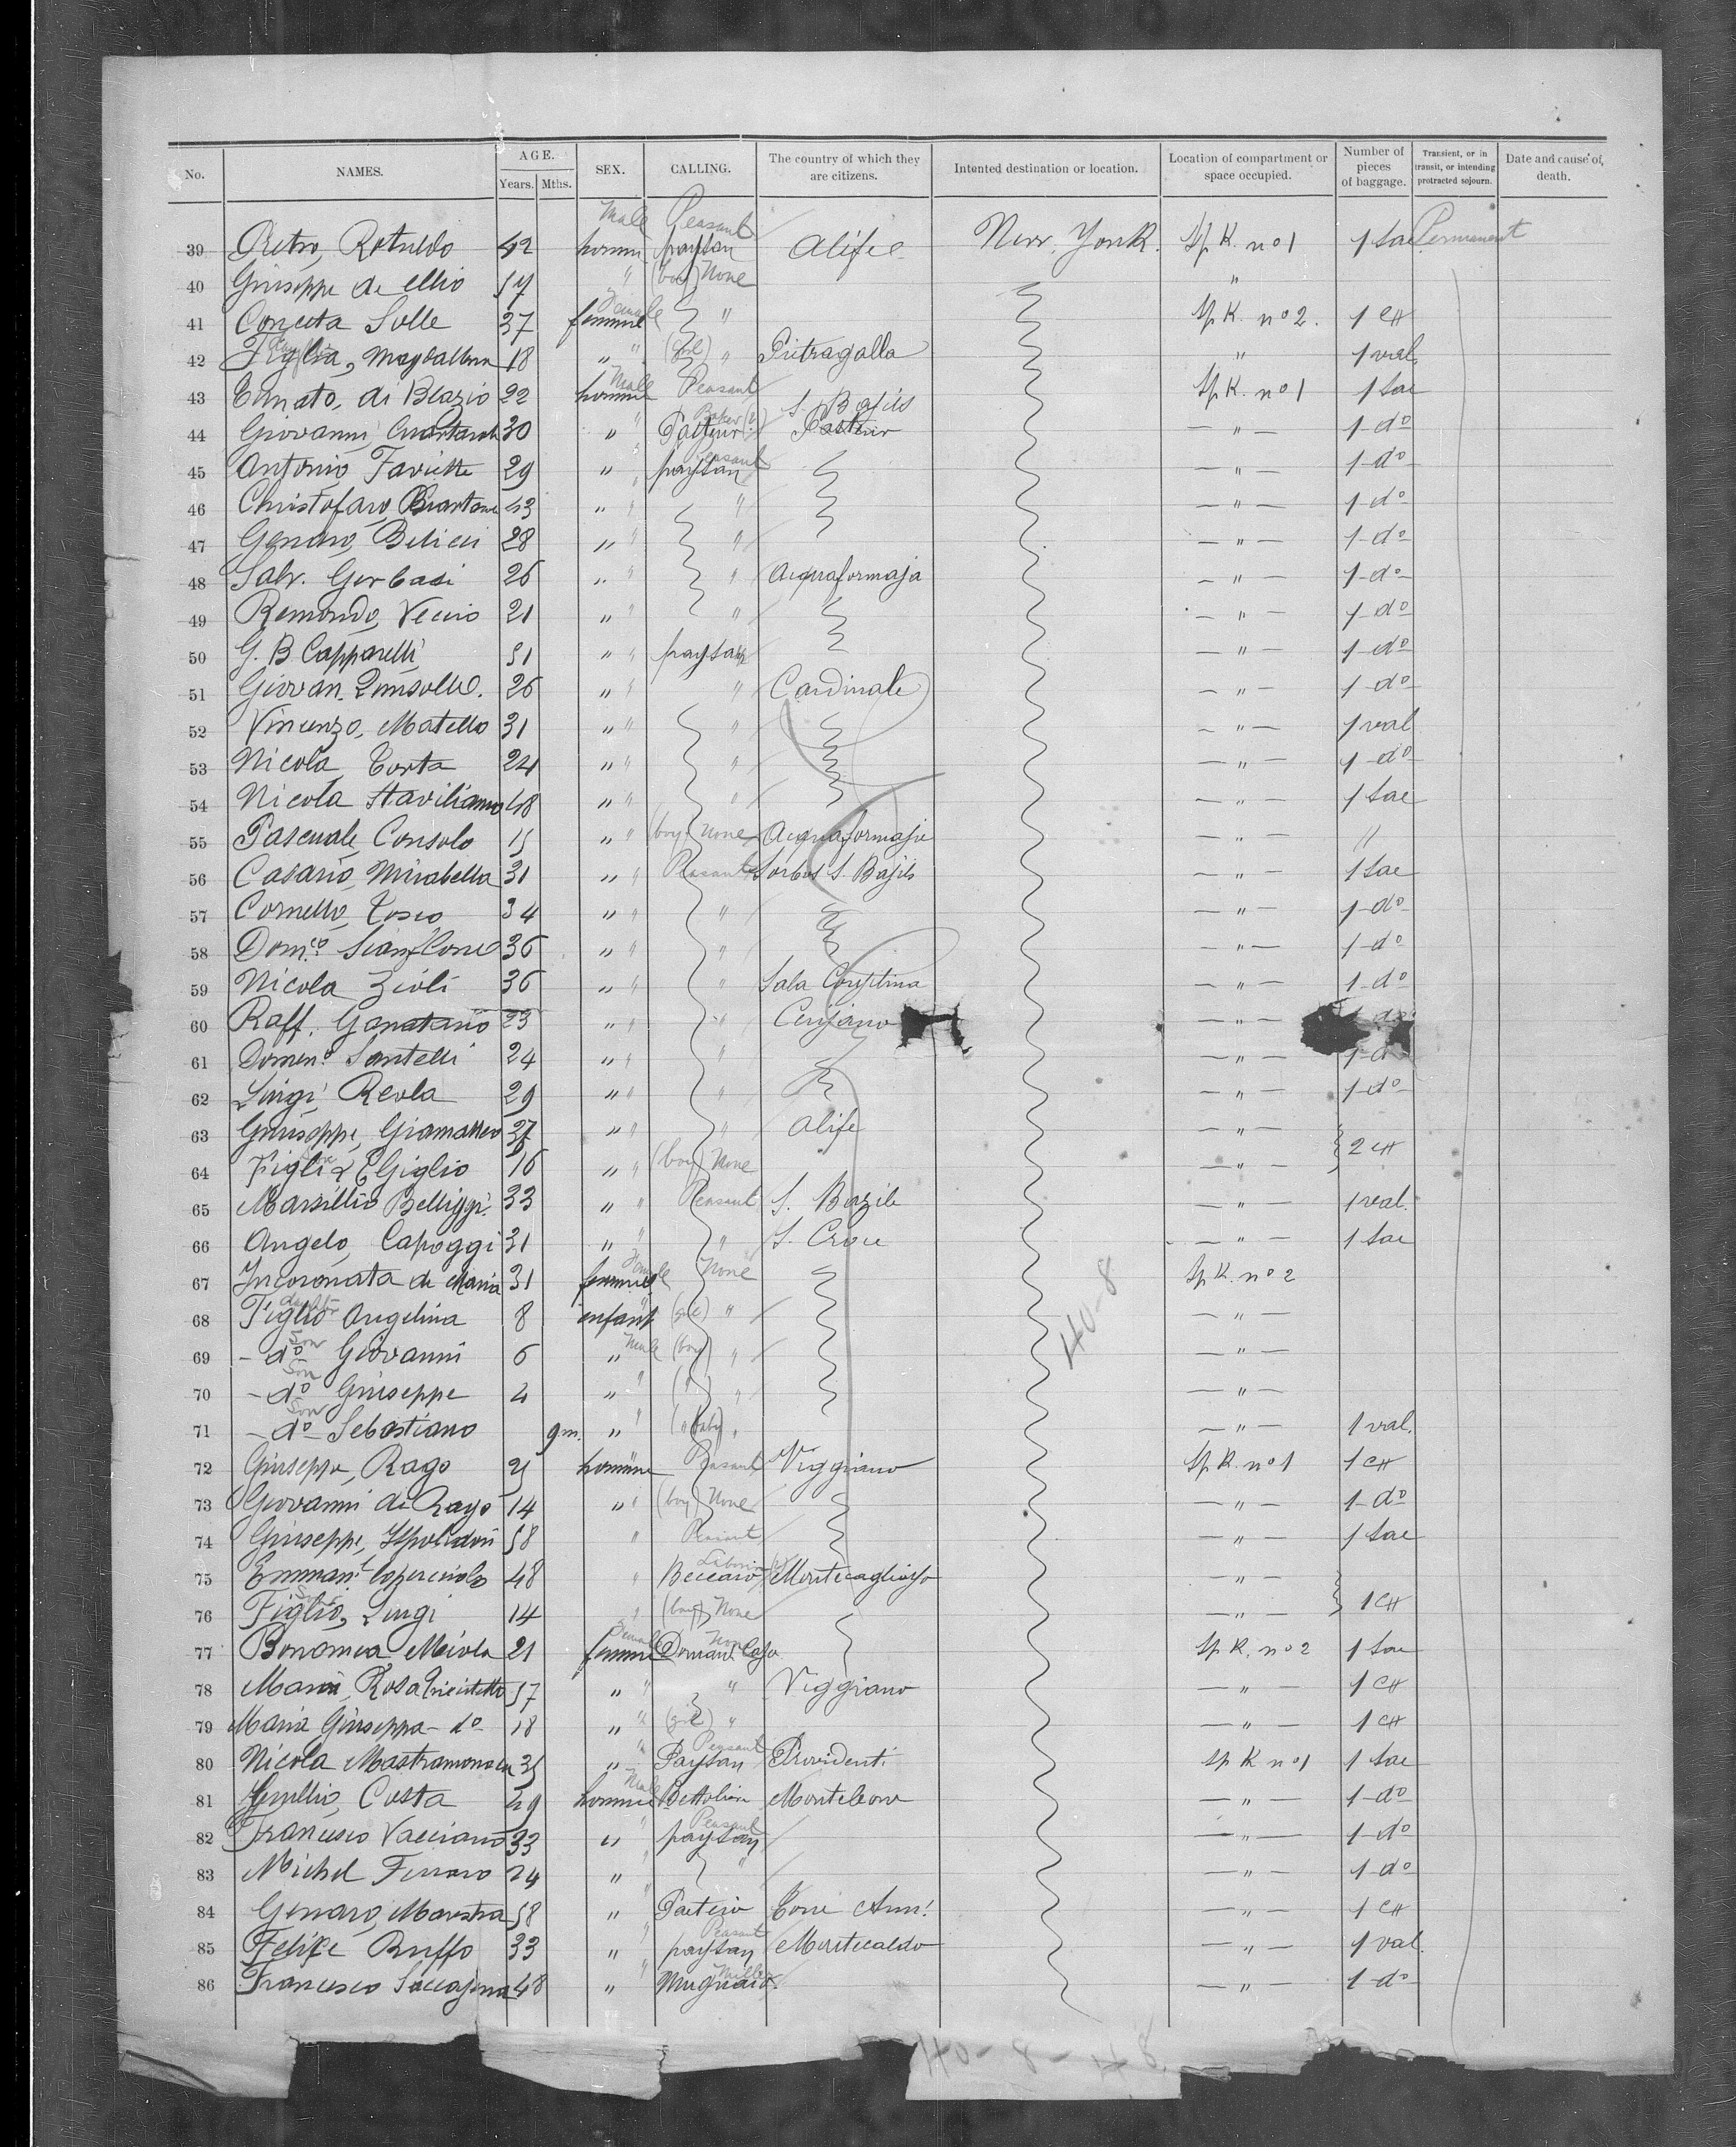 No. NAMES. AGE. Years. Mths. SEX. CALLING. The country of which they are citizens. Intented destination or location. Location of compartment or space occupied. Number of pieces of baggage. Transient, or in transit, or intending protracted sojourn. Date and cause of, death.
Male Peasant
39 Pietro, Rotuldo 42 homme paysan Alife New York. Sp K. no 1 1 sac Permanent
40 Giuseppe de Ellio 57 " (boy) None "
41 Conceta Solle 37 femme Female " Sp K. no 2. 1 CH
42 Figlia, Magdallena 18 " " (girl) " Pietragalla " 1 val
43 di Blazio 22 homme Male Peasant S. Basils Sp K. no 1 1 sac
44 Giovanni 30 " " Pasteur Baker Pasteur — " — 1 do
45 Antonio Faviette 29 " " paysan Peasant — " — 1 do
46 Christofaro 43 " " " — " — 1 do
47 Genaro, Belicci 28 " " " — " — 1 do
48 Salv. Gerbasi 26 " " " Acquaformaja — " — 1 do
49 Remondo, Veccio 21 " " " — " — 1 do
50 G. B Capparelli 51 " " paysan — " — 1 do
51 Giovan. 26 " " " Cardinale — " — 1 do
52 Vincenzo, Matello 31 " " " — " — 1 val
53 Nicola Torta 24 " " " — " — 1 do
54 Nicola Staviliano 48 " " " — " — 1 sac
55 Pascuale, Consolo 15 " " (boy) None Acquaformaja — " — "
56 Casario, Mirabella 31 " " Peasant Sorbos S. Basils — " — 1 sac
57 Cornello, Tosco 34 " " " — " — 1 do
58 Dom.co 36 " " " — " — 1 do
59 Nicola Zioli 36 " " " Sala Consilina — " — 1 do
60 Raff. 23 " " " — " — 1 do
61 Domen.o Santelli 24 " " " — " — 1 do
62 Luigi, Reola 29 " " " — " — 1 do
63 Giuseppe, Giamatteo 37 " " " Alife — " — 2 CH
64 Figli Giglio 16 " " (boy) None — " —
65 Marsillio Belliggi 33 " " Peasant S. Bazile — " — 1 val.
66 Angelo, Capoggi 31 " " " S. Croce — " — 1 sac
67 Incoronata de Maria 31 femme Female None Sp K. no 2
68 Figlio daughter Angelina 8 enfant " (girl) " — " —
69 - do Son Giovanni 6 " Male (boy) " — " —
70 - do Son Giuseppe 4 " " (") " — " —
71 - do Son Sebastiano 9 m. " " (" baby) " — " — 1 val.
72 Giuseppe, Rago 25 homme Peasant Viggiano Sp K. no 1 1 CH
73 Giovanni di Rago 14 " " (boy) None — " — 1 do
74 Giuseppe, 58 " Peasant — " — 1 sac
75 Emman.l 48 " Beccaio — " — 1 CH
76 Figlio, Son Luigi 14 " (boy) None — " —
77 Bonomea Miola 21 femme Female None Sp K. no 2 1 sac
78 Maria, Rosa 57 " " " Viggiano — " — 1 CH
79 Maria Giuseppa - do 18 " " (girl) " — " — 1 CH
80 Nicola 35 " " Paysan Peasant Providenti Sp K no 1 1 sac
81 Costa 49 homme Male Bettolier Monteleone — " — 1 do
82 Francesco Vacciano 33 " " paysan Peasant — " — 1 do
83 Michel Ferraro 24 " " " — " — 1 do
84 Genaro, Maestra 58 " " Torre Ann. — " — 1 CH
85 Felipe Ruffo 33 " " paysan Peasant Montecaldo — " — 1 val.
86 Francesco 48 " " Mugnaio Miller — " — 1 do
40-8